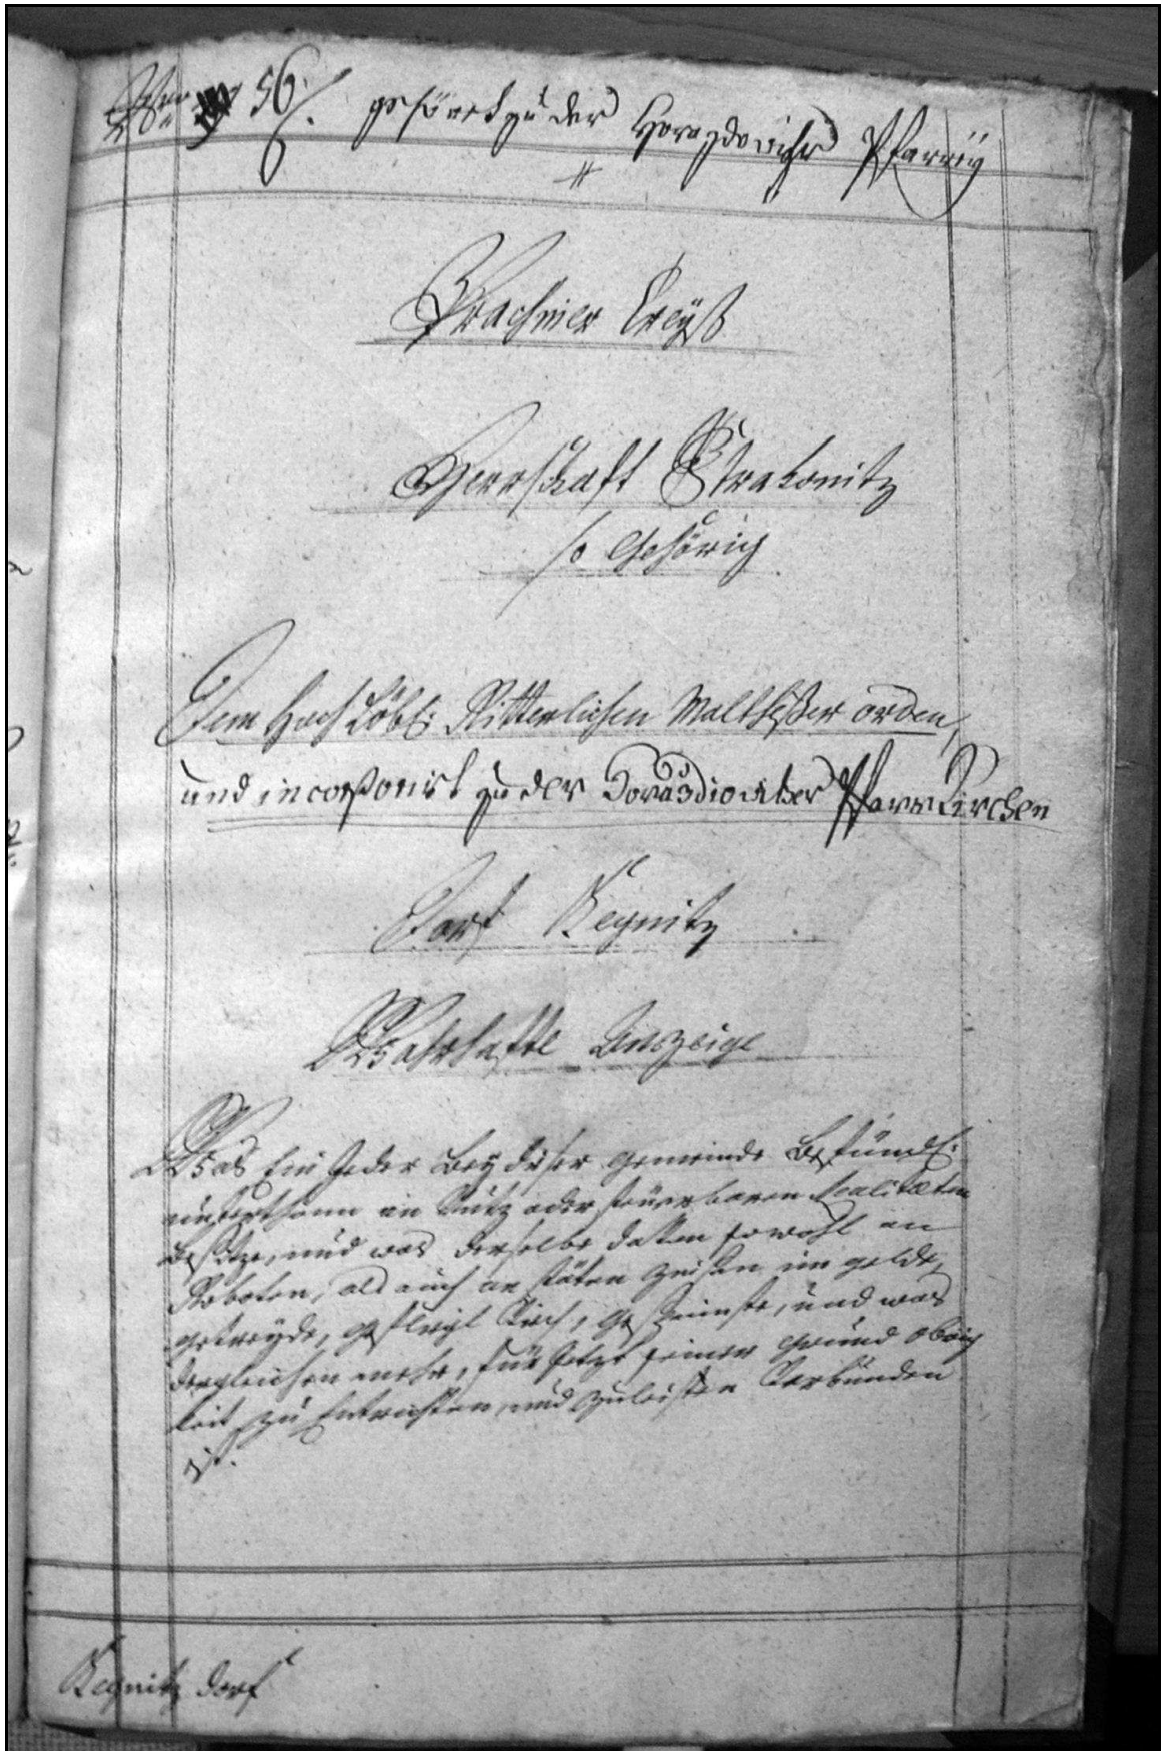 56. gehöret zu der Horazdowitzer Pfarreÿ
Prachiner Creÿß
Herrschaft Strakonitz
so Gehörig
Dem Hoch Löbl: Ritterlichen Maltheßer orden,
und incorporirt zu der Horazdiowitzer Pfarr Kirchen
Dorf Kegnitz
Wahrhafte Anzeige
Was Ein Jeder Beÿ dießer gemeinde Befündl:
unterthann an Nutz oder steuerbaren Realitæten
Besitze, und was derselbe davon sowohl an
Roboten, als auch an stäten Zinsen im gelde,
getreÿde, gefliegl Vieh, gespunste, und was
dergleichen mehr, für Jetzt seiner grund obrig
keit zu Entrichten, und zuleisten Verbunden
ist.
Kegnitz Dorf